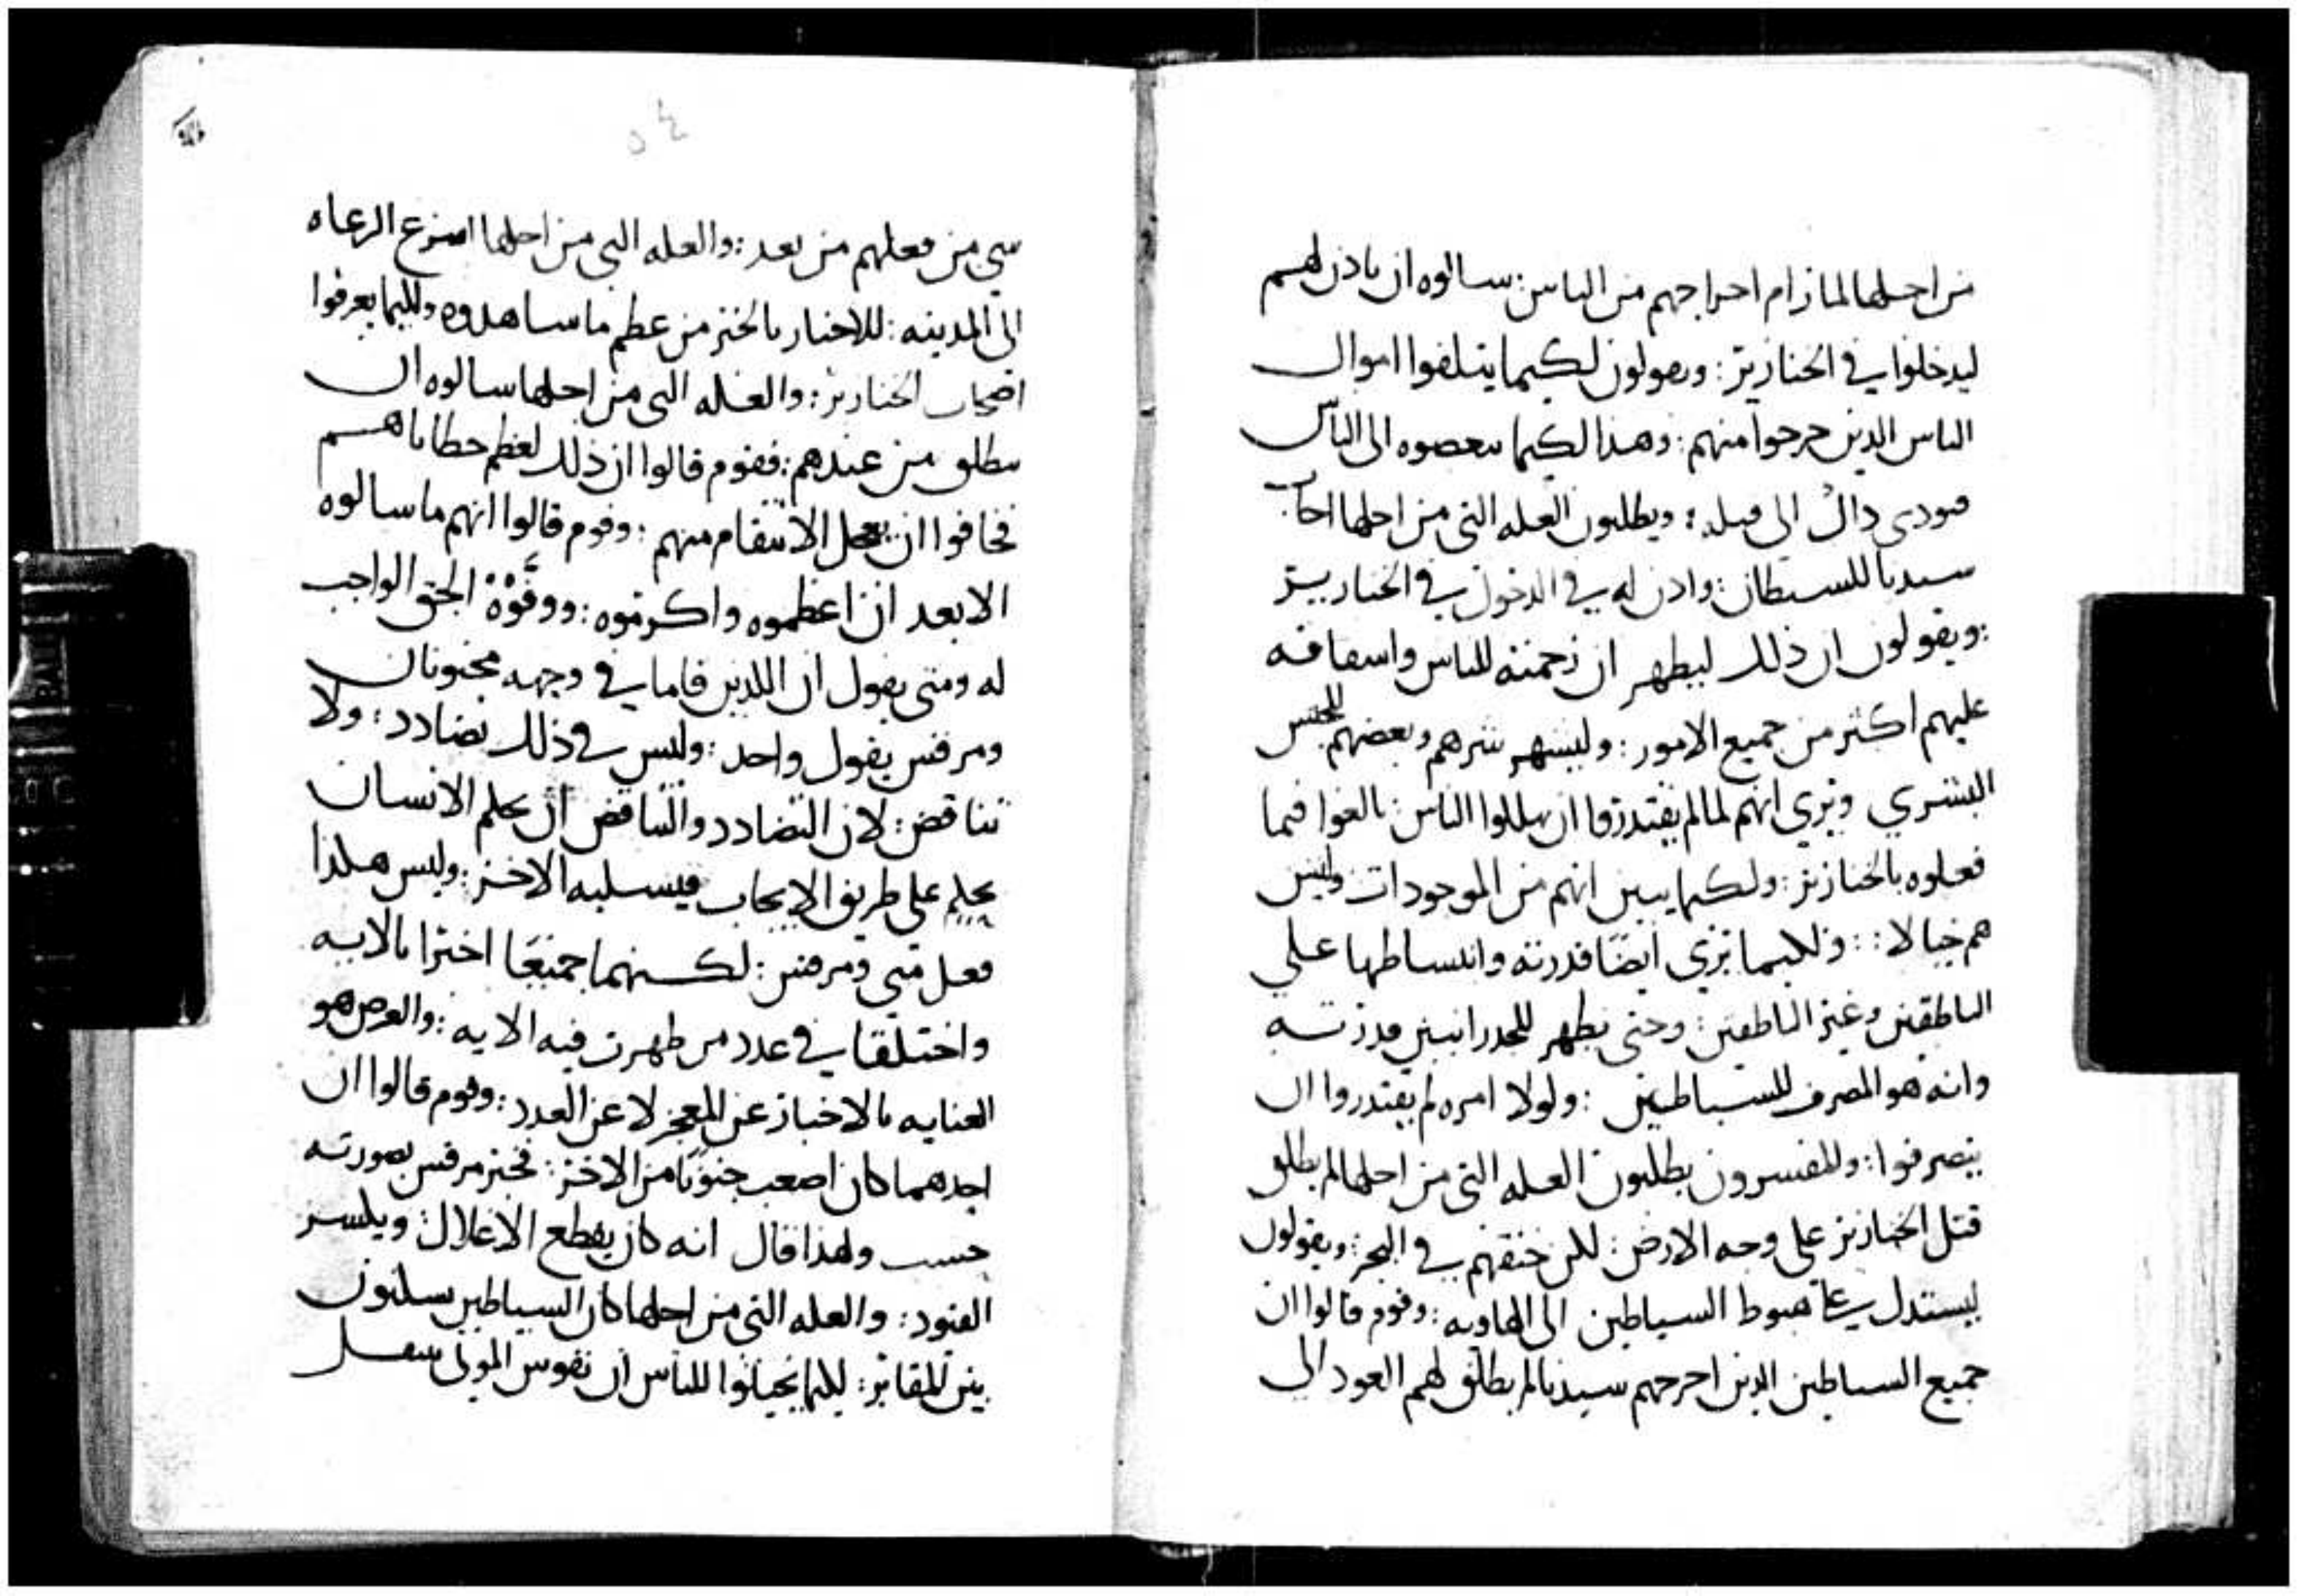 من اجلها لما رام اخراجهم من الناس: سالوه ان ياذن لهم
ليدخلوا في الخنازير: ويقولون لكيما يتلفوا اموال
الناس الذين خرجوا منهم: وهذا لكيما يبغضوه الى الناس
فيودي ذاك الى قتله: ويطلبون العله التي من اجلها اجاب
سيدنا للشيطان: واذن له في الدخول في الخنازير
: ويقولون ان ذلك ليظهر ان رحمته للناس واشفاقه
عليهم اكثر من جميع الامور: وليشهر شرهم وبغضهم للجنس
البشري ويري انهم لما لم يقتدروا ان يهلكوا الناس: بالغوا فيما
فعلوه بالخنازير: ولكيما يبين انهم من الموجودات وليس
هم خيالا: : ولكيما يري ايضًا قدرته وانبساطها على
الناطقين وغير الناطقين: وحتى يظهر للجدرانيين قدرته
وانه هو المصرف للشياطين: ولولا امره لم يقتدروا ان
ينصرفوا: والمفسرون يطلبون العله التي من اجلها لم يطلق
قتل الخنازير على وجه الارض: لكن خنقهم في البحر: ويقولون
ليستدل على هبوط الشياطين الى الهاويه: وقوم قالوا ان
جميع الشياطين الذين اخرجهم سيدنا لم يطلق لهم العود الى
٥٤
شي من فعلهم من بعد: والعله التي من اجلها اسرع الرعاه
الى المدينه: للاخبار بالخبر من عظم ما شاهدوه ولكيما يعرفوا
اصحاب الخنازير: والعله التي من اجلها سالوه ان
ينطلق من عندهم: فقوم قالوا ان ذلك لعظم خطاياهم
فخافوا ان يعجل الانتقام منهم: وقوم قالوا انهم ما سالوه
الا بعد ان اعظموه واكرموه: ووفَّوْهُ الحق الواجب
له ومتى يقول ان اللذين قاما في وجهه مجنونان
ومرقس يقول واحد: وليس في ذلك تضادد: ولا
تناقض: لان التضادد والتناقض ان يحكم الانسان
بحكم على طريق الايجاب فيسلبه الاخر: وليس هكذا
فعل متى ومرقس: لكنهما جميعًا اخبرا بالايه
واختلفا في عدد من ظهرت فيه الايه: والغرض هو
العنايه بالاخبار عن المعجز لا عن العدد: وقوم قالوا ان
احدهما كان اصعب جنونًا من الاخر: فخبر مرقس بصورته
حسب ولهذا قال انه كان يقطع الاغلال: ويكسر
القيود: والعله التي من اجلها كان الشياطين يسكنون
بين المقابر: لكيما يخيلوا للناس ان نفوس الموتى تنتقل